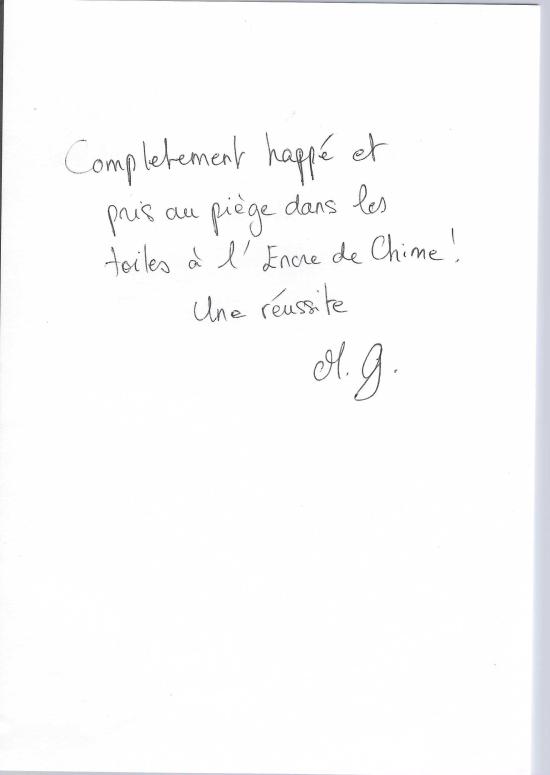 Completement happé et
pris au piège dans les
toiles à l'Encre de Chine!
Une réussite
M. G.